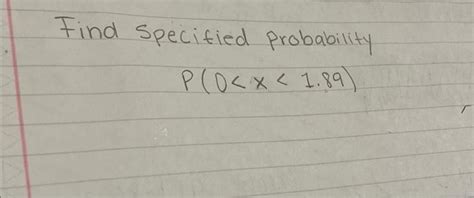 Find Specified Probability
P(0 < x < 1.89)